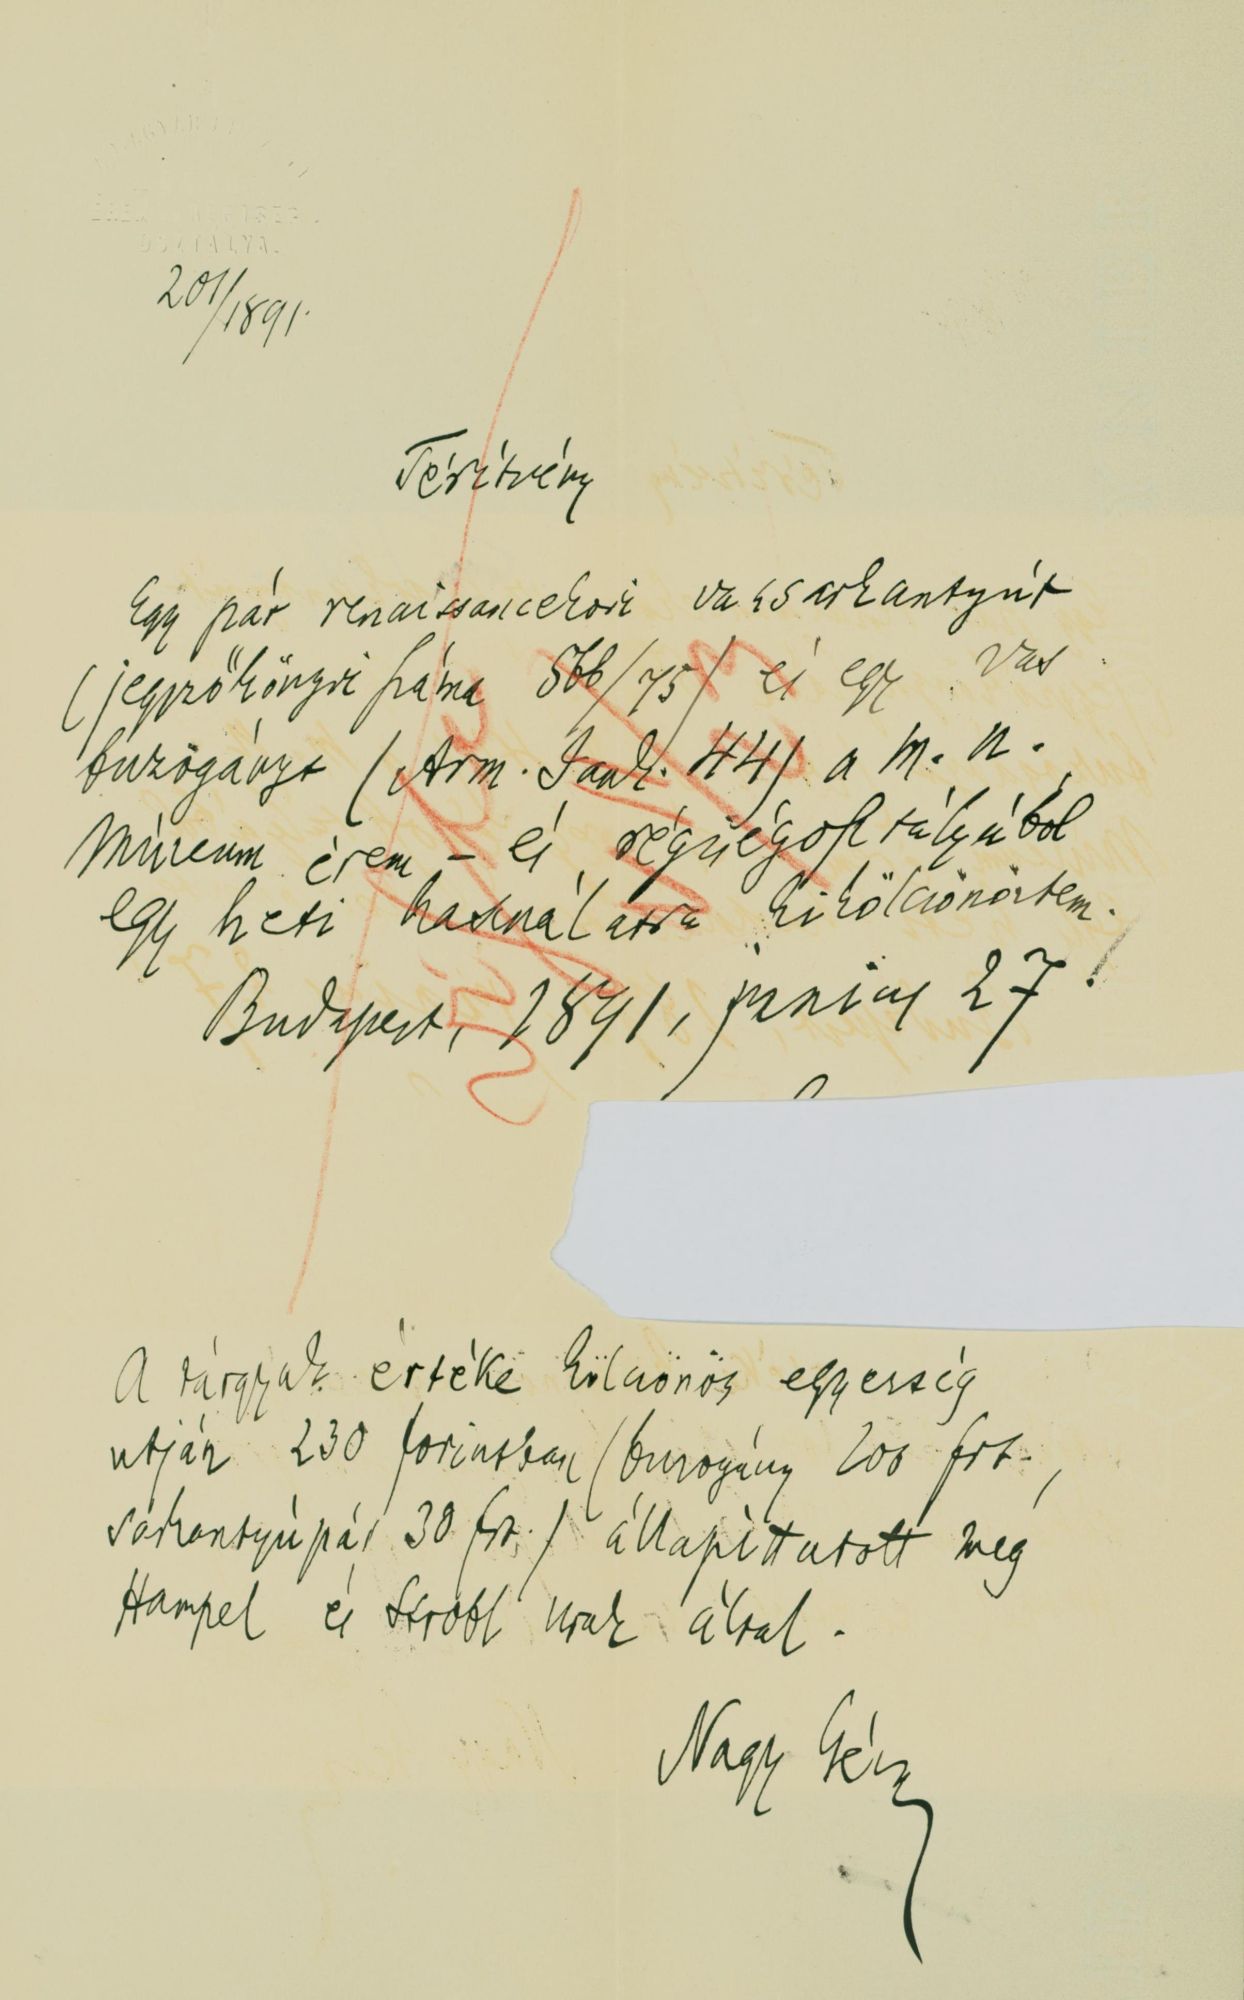 201/1891.
Térítvény
Egy pár renaissancekori vassarkantyút
(jegyzőkönyvi száma 566/75) és egy vas
buzogányt (Arm. Jank. 44) a m. n.
Múzeum érem- és régiségosztályából
egy heti használatra kikölcsönöztem.
Budapest, 1891, junius 27.
A tárgyak értéke kölcsönös egyesség
utján 230 forintban (buzogány 200 frt.,
sarkantyúpár 30 frt.) állapíttatott meg
Hampel és Strobl urak által.
Nagy Géza